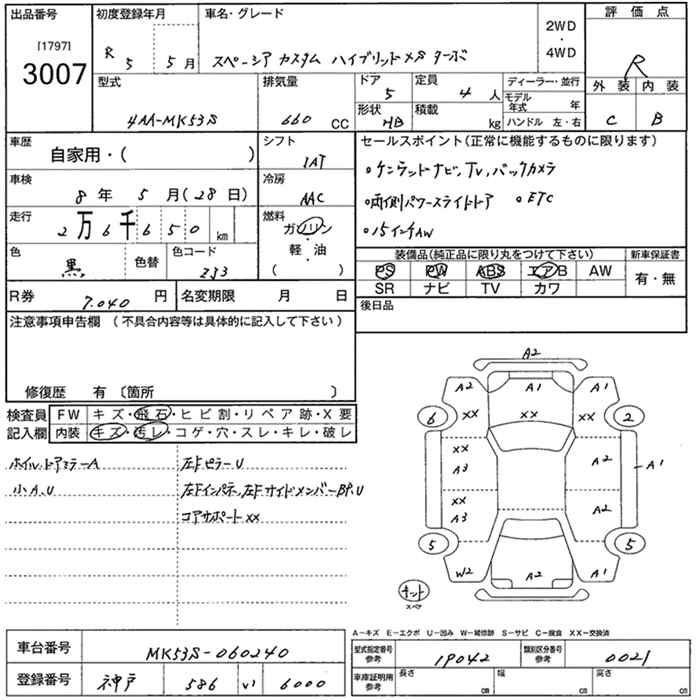 出品番号 初度登録年月 車名・グレード 評価点
[1797]
3007
R 5 5月 スペーシア カスタム ハイブリッドXS ターボ 2WD・4WD R
型式 排気量 ドア 5 定員 4人 ディーラー・並行 外装 内装
モデル年式 年
4AA-MK53S 660 CC 形状 HB 積載 kg ハンドル 左・右 C B
車歴 自家用・( ) シフト IAT セールスポイント(正常に機能するものに限ります)
車検 8年 5月(28日) 冷房 AAC ・ケンウッドナビ,TV,バックカメラ
走行 2万6千650km 燃料 ガソリン ・両側パワースライドドア ・ETC
軽・油 ・15インチAW
( )
色 黒 色替 色コード ZJ3 装備品(純正品に限り丸をつけて下さい) 新車保証書
PS PW ABS エアB AW 有・無
R券 7.040円 名変期限 月 日 SR ナビ TV カワ
注意事項申告欄 (不具合内容等は具体的に記入して下さい) 後日品
修復歴 有 〔箇所 〕
検査員 FW キズ・飛石・ヒビ割・リペア跡・X要
記入欄 内装 キズ・汚レ・コゲ・穴・スレ・キレ・破レ
ホイル,ドアミラーA 左Fピラーu
小A.U 左Fインパネ,左FサイドメンバーBP,U
コアサポートXX
A2
A2 A1 A1
6 XX XX XX 2
XX A3 A2 A1
XX A3 A2
5 5
W2 A2 A1
キット
スペア
A-キズ E-エクボ U-凹み W-補修跡 S-サビ C-腐食 XX-交換済
車台番号 MK53S-060240 型式指定番号 参考 19042 類別区分番号 参考 0021
登録番号 神戸 586 い 6000 車庫証明用 参考 長さ cm 幅 cm 高さ cm